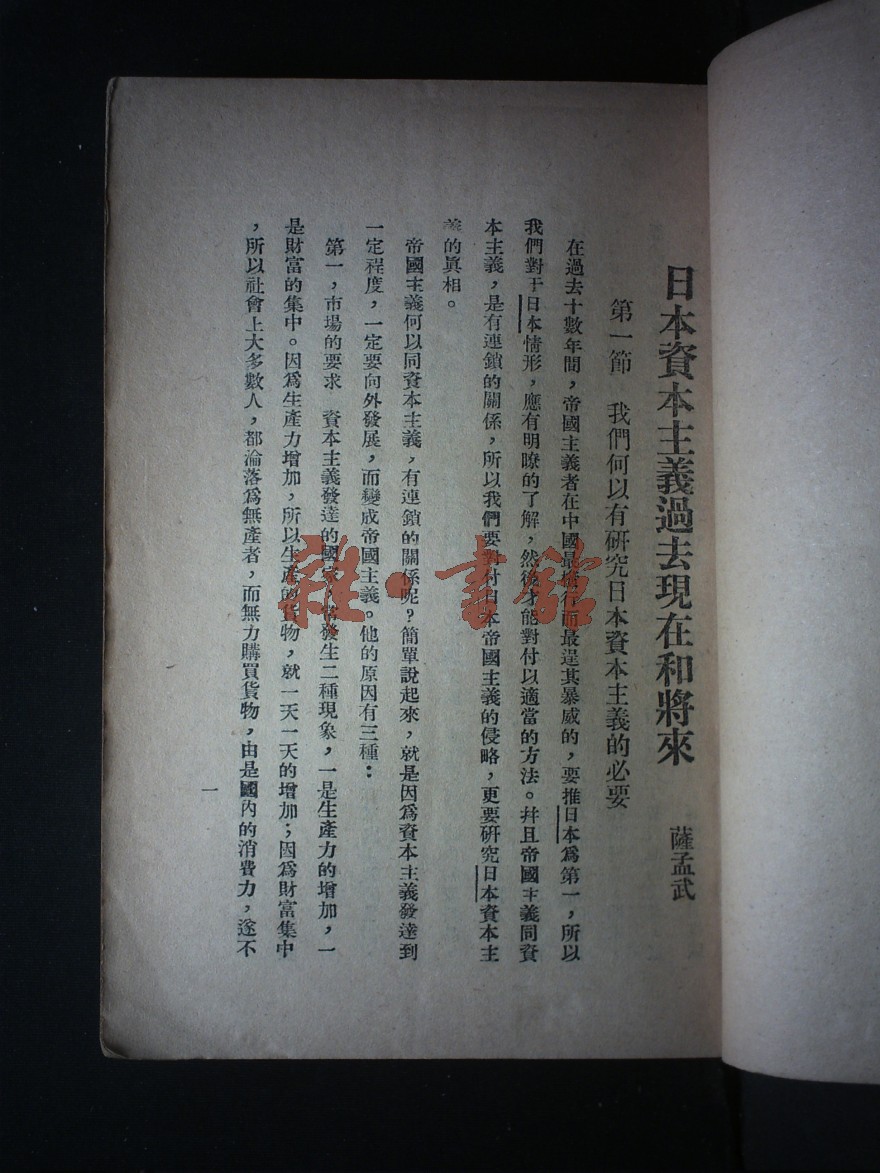 日本資本主義過去現在和將來
薩孟武
第一節　我們何以有研究日本資本主義的必要
在過去十數年間，帝國主義者在中國最橫行而最逞其暴威的，要推日本爲第一，所以
我們對于日本情形，應有明瞭的了解，然後才能對付以適當的方法。幷且帝國主義同資
本主義，是有連鎖的關係，所以我們要對付日本帝國主義的侵略，更要研究日本資本主
義的眞相。
帝國主義何以同資本主義，有連鎖的關係呢？簡單說起來，就是因爲資本主義發達到
一定程度，一定要向外發展，而變成帝國主義。他的原因有三種：
第一，市場的要求　資本主義發達的國家，常發生二種現象，一是生產力的增加，一
是財富的集中。因爲生產力增加，所以生產的貨物，就一天一天的增加；因爲財富集中
，所以社會上大多數人，都淪落爲無產者，而無力購買貨物，由是國內的消費力，遂不
一
雜·書館